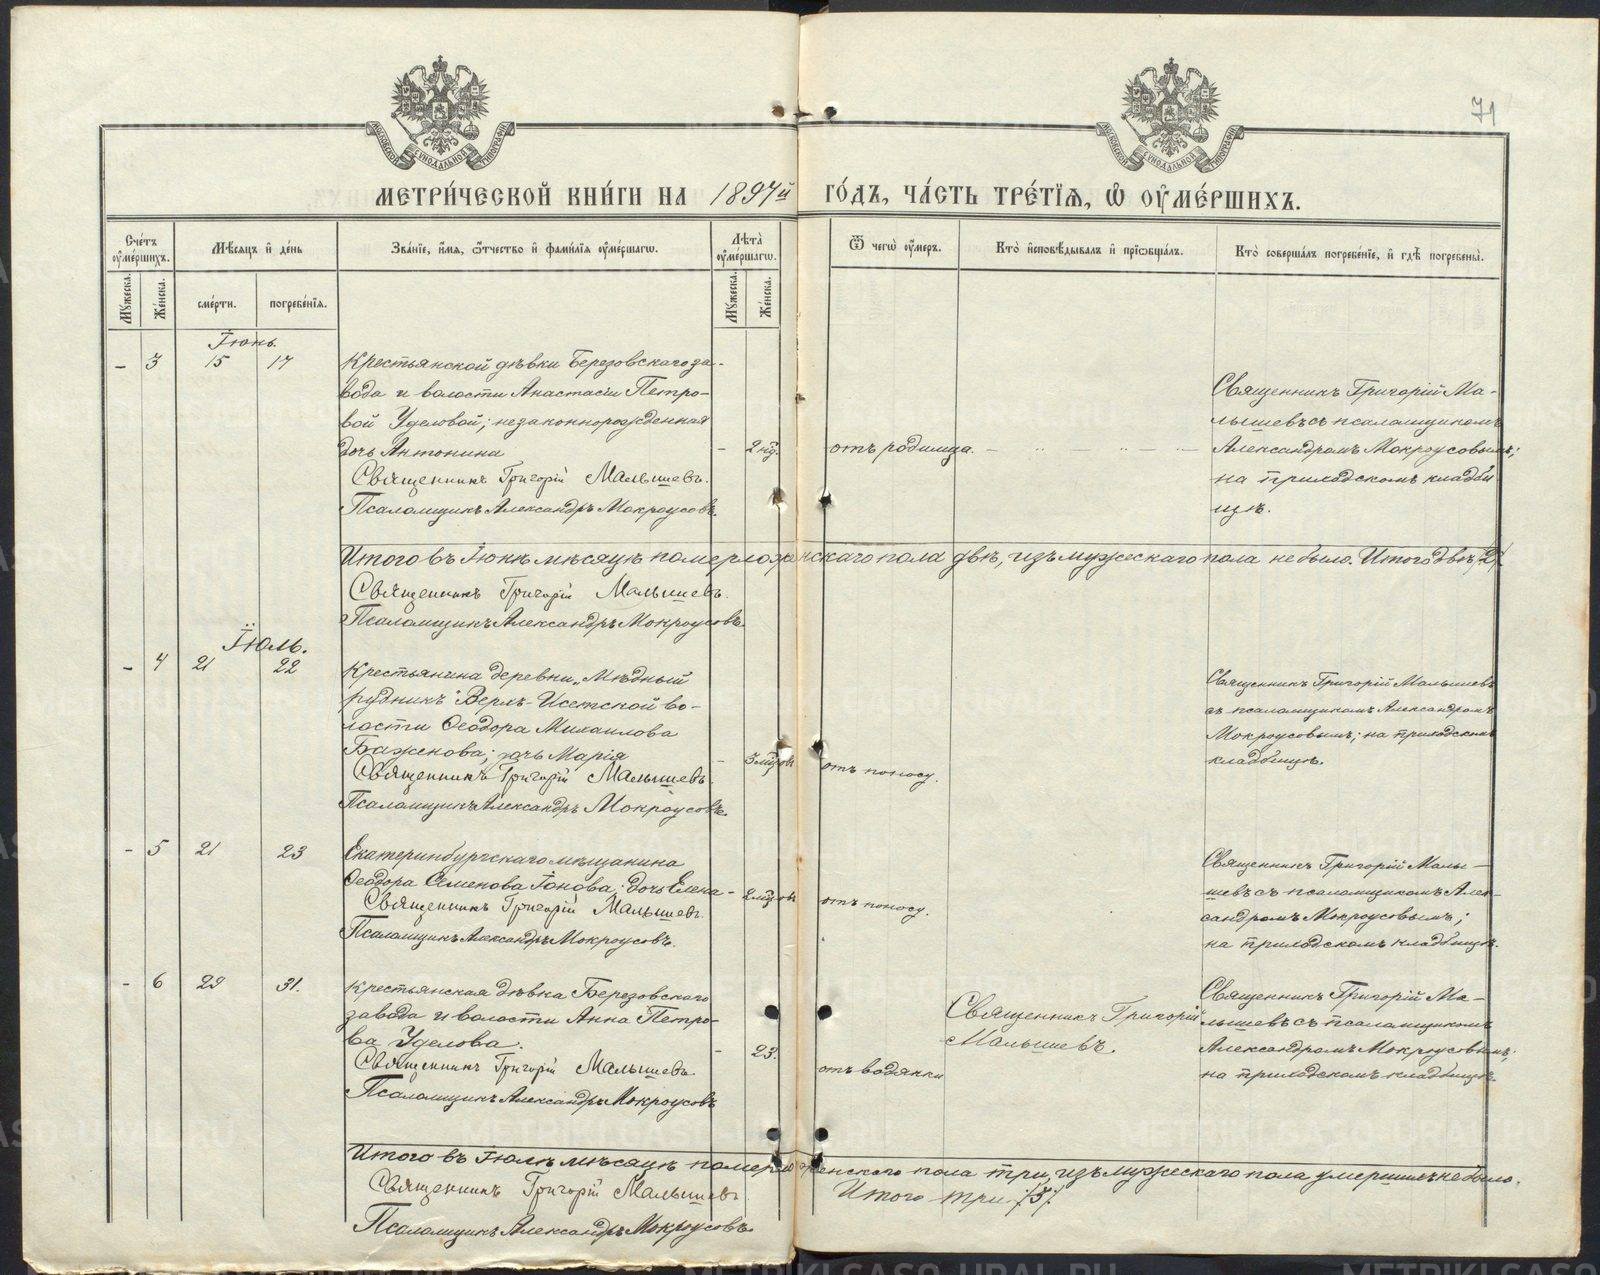 71
МОСКОВСКОЙ СѴНОДАЛЬНОЙ ТИПОГРАФІИ
МОСКОВСКОЙ СѴНОДАЛЬНОЙ ТИПОГРАФІИ
МЕТРИ́ЧЕСКОЙ КНИ́ГИ НА 1897й ГО́ДЪ, ЧА́СТЬ ТРЕ́ТІЯ, Ѡ ОУМЕ́РШИХЪ.
Сче́тъ оуме́ршихъ.
Мѣсяцъ и де́нь
Зва́ніе, и́мя, ѻтчество и фами́лія оуме́ршагѡ.
Лѣта̀ оуме́ршагѡ.
Ѿ чегѡ̀ оу́меръ.
Кто̀ исповѣ́дывалъ и пріѡбща́лъ.
Кто̀ соверша́лъ погребе́ніе, и гдѣ̀ погребены̀.
Му́жеска.
Же́нска.
сме́рти.
погребе́нія.
Му́жеска.
Же́нска.
Іюнь.
– 3 15 17 Крестьянской дѣвки Березовскаго за-
вода и волости Анастасіи Петро-
вой Удѣловой; незаконнорожденная
дочь Антонина – 2 нд. отъ родимца.
Священникъ Григорій Малышевъ.
Псаломщикъ Александръ Мокроусовъ.
Священникъ Григорій Ма-
лышевъ съ псаломщикомъ
Александромъ Мокроусовымъ;
на приходскомъ кладби-
щѣ.
Итого въ Іюнѣ мѣсяцѣ померло женскаго пола двѣ, изъ мужескаго пола не было. Итого двѣ /2/
Священникъ Григорій Малышевъ.
Псаломщикъ Александръ Мокроусовъ.
Іюль.
– 4 21 22 Крестьянина деревни „Мѣдный
рудникъ" Верхъ-Исетской во-
лости Ѳеодора Михаилова
Баженова; дочь Марія – 3 отъ поносу.
Священникъ Григорій Малышевъ.
Псаломщикъ Александръ Мокроусовъ.
Священникъ Григорій Малышевъ
съ псаломщикомъ Александромъ
Мокроусовымъ; на приходскомъ
кладбищѣ.
– 5 21 23 Екатеринбургскаго мѣщанина
Ѳеодора Семенова Іонова; дочь Елена – 2 отъ поносу.
Священникъ Григорій Малышевъ.
Псаломщикъ Александръ Мокроусовъ.
Священникъ Григорій Малы-
шевъ съ псаломщикомъ Алек-
сандромъ Мокроусовымъ;
на приходскомъ кладбищѣ.
– 6 29 31. Крестьянская дѣвка Березовскаго
завода и волости Анна Петро-
ва Уделова. – 23. отъ водянки
Священникъ Григорій Малышевъ.
Псаломщикъ Александръ Мокроусовъ
Священникъ Григорій
Малышевъ.
Священникъ Григорій Ма-
лышевъ съ псаломщикомъ
Александромъ Мокроусовымъ;
на приходскомъ кладбищѣ.
Итого въ Іюлѣ мѣсяцѣ померло женскаго пола три, изъ мужескаго пола умершихъ не было.
Итого три /3/
Священникъ Григорій Малышевъ
Псаломщикъ Александръ Мокроусовъ.
METRIKI.GASO-URAL.RU